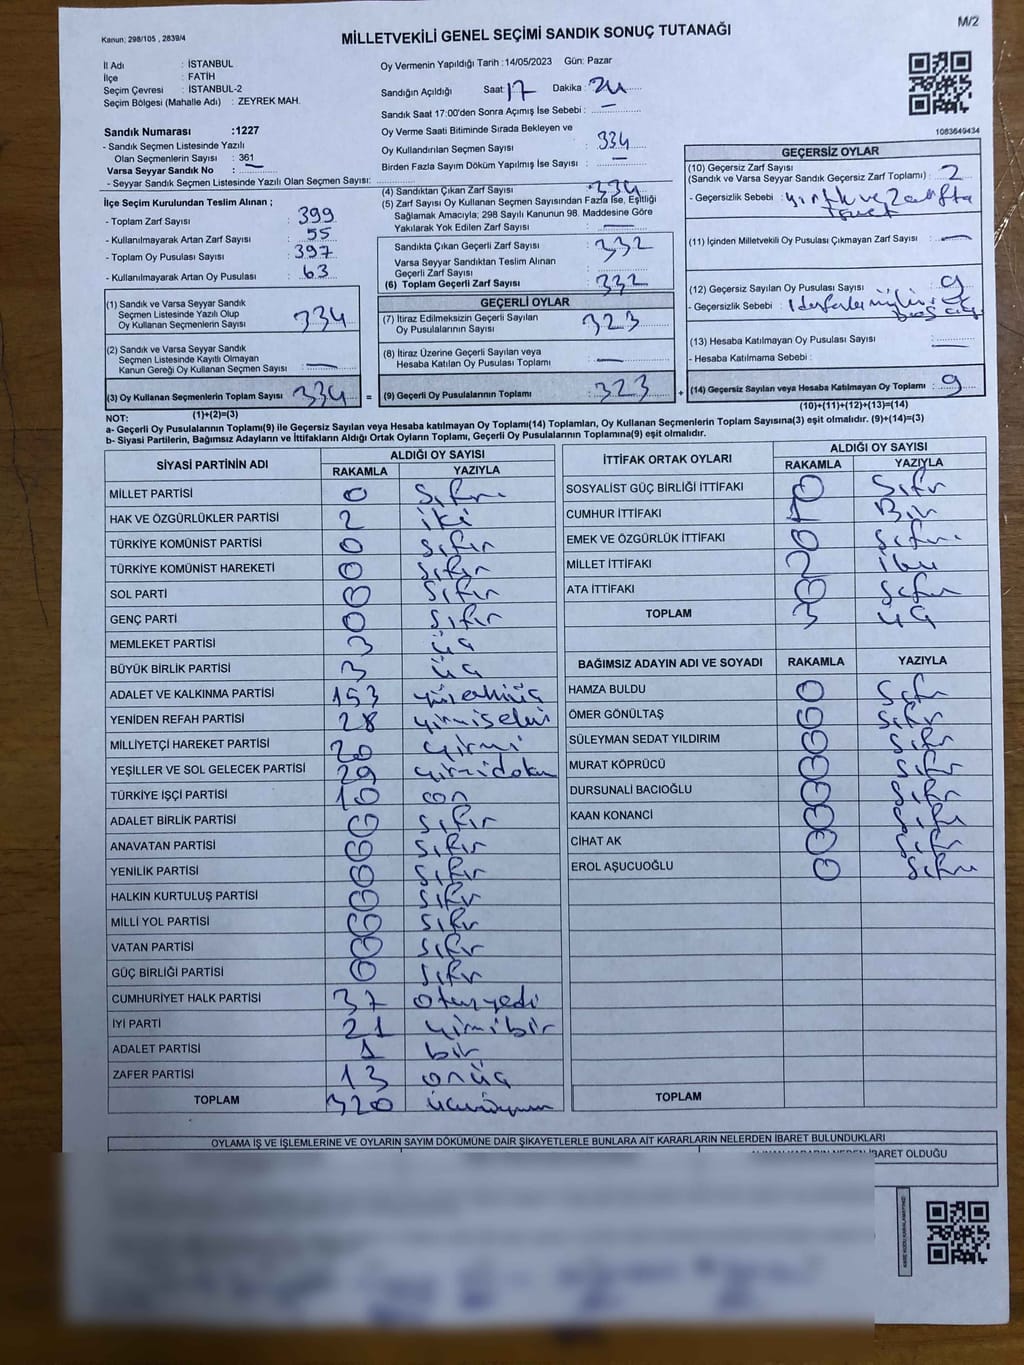 Kanun: 298/105 , 2839/4
MİLLETVEKİLİ GENEL SEÇİMİ SANDIK SONUÇ TUTANAĞI
M/2
İl Adı : İSTANBUL
İlçe : FATİH
Seçim Çevresi : İSTANBUL-2
Seçim Bölgesi (Mahalle Adı) : ZEYREK MAH.
Oy Vermenin Yapıldığı Tarih : 14/05/2023 Gün: Pazar
Sandığın Açıldığı Saat 17 Dakika : 24
Sandık Saat 17:00'den Sonra Açımış İse Sebebi : —
Oy Verme Saati Bitiminde Sırada Bekleyen ve
Oy Kullandırılan Seçmen Sayısı : 334
Birden Fazla Sayım Döküm Yapılmış İse Sayısı : —
1083649434
Sandık Numarası :1227
- Sandık Seçmen Listesinde Yazılı
Olan Seçmenlerin Sayısı : 361
Varsa Seyyar Sandık No : —
- Seyyar Sandık Seçmen Listesinde Yazılı Olan Seçmen Sayısı:
İlçe Seçim Kurulundan Teslim Alınan ;
- Toplam Zarf Sayısı : 399
- Kullanılmayarak Artan Zarf Sayısı : 55
- Toplam Oy Pusulası Sayısı : 397
- Kullanılmayarak Artan Oy Pusulası : 63
(1) Sandık ve Varsa Seyyar Sandık
Seçmen Listesinde Yazılı Olup
Oy Kullanan Seçmenlerin Sayısı 334
(2) Sandık ve Varsa Seyyar Sandık
Seçmen Listesinde Kayıtlı Olmayan
Kanun Gereği Oy Kullanan Seçmen Sayısı : —
(3) Oy Kullanan Seçmenlerin Toplam Sayısı 334 =
(1)+(2)=(3)
(4) Sandıktan Çıkan Zarf Sayısı : 334
(5) Zarf Sayısı Oy Kullanan Seçmen Sayısından Fazla İse, Eşitliği
Sağlamak Amacıyla; 298 Sayılı Kanunun 98. Maddesine Göre
Yakılarak Yok Edilen Zarf Sayısı : —
Sandıkta Çıkan Geçerli Zarf Sayısı : 332
Varsa Seyyar Sandıktan Teslim Alınan
Geçerli Zarf Sayısı :
(6) Toplam Geçerli Zarf Sayısı : 332
GEÇERLİ OYLAR
(7) İtiraz Edilmeksizin Geçerli Sayılan
Oy Pusulalarının Sayısı : 323
(8) İtiraz Üzerine Geçerli Sayılan veya
Hesaba Katılan Oy Pusulası Toplamı : —
(9) Geçerli Oy Pusulalarının Toplamı : 323 +
GEÇERSİZ OYLAR
(10) Geçersiz Zarf Sayısı
(Sandık ve Varsa Seyyar Sandık Geçersiz Zarf Toplamı) : 2
- Geçersizlik Sebebi :
(11) İçinden Milletvekili Oy Pusulası Çıkmayan Zarf Sayısı : —
(12) Geçersiz Sayılan Oy Pusulası Sayısı : 9
- Geçersizlik Sebebi :
(13) Hesaba Katılmayan Oy Pusulası Sayısı : —
- Hesaba Katılmama Sebebi :
(14) Geçersiz Sayılan veya Hesaba Katılmayan Oy Toplamı : 9
(10)+(11)+(12)+(13)=(14)
NOT:
a- Geçerli Oy Pusulalarının Toplamı(9) ile Geçersiz Sayılan veya Hesaba katılmayan Oy Toplamı(14) Toplamları, Oy Kullanan Seçmenlerin Toplam Sayısına(3) eşit olmalıdır. (9)+(14)=(3)
b- Siyasi Partilerin, Bağımsız Adayların ve İttifakların Aldığı Ortak Oyların Toplamı, Geçerli Oy Pusulalarının Toplamına(9) eşit olmalıdır.
SİYASİ PARTİNİN ADI
ALDIĞI OY SAYISI
RAKAMLA YAZIYLA
MİLLET PARTİSİ 0 sıfır
HAK VE ÖZGÜRLÜKLER PARTİSİ 2 iki
TÜRKİYE KOMÜNİST PARTİSİ 0 sıfır
TÜRKİYE KOMÜNİST HAREKETİ 0 sıfır
SOL PARTİ 0 sıfır
GENÇ PARTİ 0 sıfır
MEMLEKET PARTİSİ 3 üç
BÜYÜK BİRLİK PARTİSİ 3 üç
ADALET VE KALKINMA PARTİSİ 153
YENİDEN REFAH PARTİSİ 28 yirmisekiz
MİLLİYETÇİ HAREKET PARTİSİ 20 yirmi
YEŞİLLER VE SOL GELECEK PARTİSİ 29 yirmidokuz
TÜRKİYE İŞÇİ PARTİSİ 10 on
ADALET BİRLİK PARTİSİ 0 sıfır
ANAVATAN PARTİSİ 0 sıfır
YENİLİK PARTİSİ 0 sıfır
HALKIN KURTULUŞ PARTİSİ 0 sıfır
MİLLİ YOL PARTİSİ 0 sıfır
VATAN PARTİSİ 0 sıfır
GÜÇ BİRLİĞİ PARTİSİ 0 sıfır
CUMHURİYET HALK PARTİSİ 37 otuzyedi
İYİ PARTİ 21 yirmibir
ADALET PARTİSİ 1 bir
ZAFER PARTİSİ 13 onüç
TOPLAM 320 üçyüzyirmi
İTTİFAK ORTAK OYLARI
ALDIĞI OY SAYISI
RAKAMLA YAZIYLA
SOSYALİST GÜÇ BİRLİĞİ İTTİFAKI 0 Sıfır
CUMHUR İTTİFAKI 1 Bir
EMEK VE ÖZGÜRLÜK İTTİFAKI 0 sıfır
MİLLET İTTİFAKI 2 iki
ATA İTTİFAKI 0 sıfır
TOPLAM 3 üç
BAĞIMSIZ ADAYIN ADI VE SOYADI RAKAMLA YAZIYLA
HAMZA BULDU 0 sıfır
ÖMER GÖNÜLTAŞ 0 sıfır
SÜLEYMAN SEDAT YILDIRIM 0 sıfır
MURAT KÖPRÜCÜ 0 sıfır
DURSUNALİ BACIOĞLU 0 sıfır
KAAN KONANCİ 0 sıfır
CİHAT AK 0 sıfır
EROL AŞUCUOĞLU 0 sıfır
TOPLAM
OYLAMA İŞ VE İŞLEMLERİNE VE OYLARIN SAYIM DÖKÜMÜNE DAİR ŞİKAYETLERLE BUNLARA AİT KARARLARIN NELERDEN İBARET BULUNDUKLARI
İBARET OLDUĞU